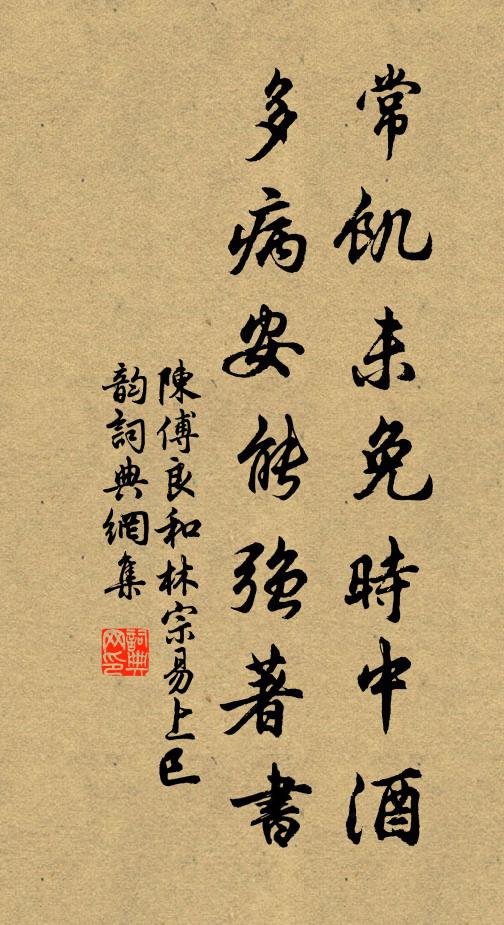 常飢未免時中酒
多病安能強著書
陳傅良和林宗易上巳
韵詞典網集
詞典
网印